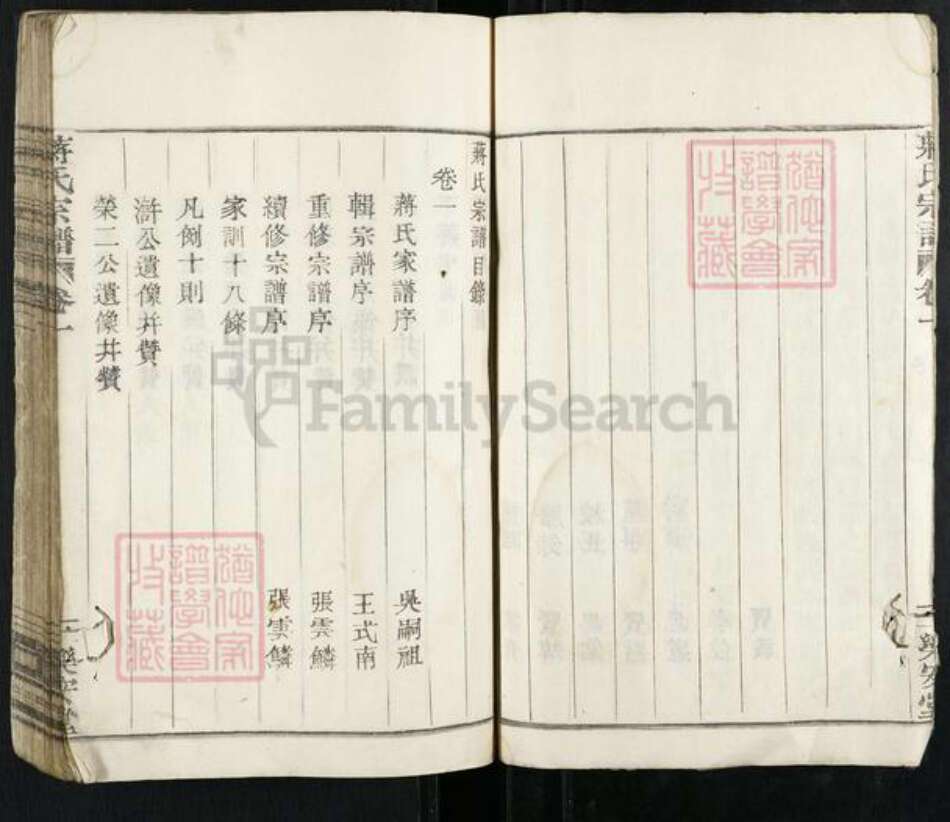 蔣氏宗譜 卷一
蔣氏宗譜目錄
卷一
蔣氏家譜序 吳嗣祖
輯宗譜序 王式南
重修宗譜序 張雲鱗
續修宗譜序 張雲鱗
家訓十八條
凡例十則
滸公遺像并贊
榮二公遺像并贊
蔣氏宗譜 卷一
譜學會
收藏
譜學會
收藏
FamilySearch